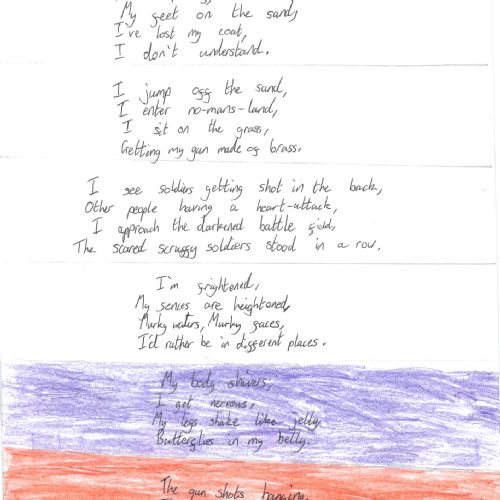 My feet on the sand,
I've lost my coat,
I don't understand.
I jump off the sand,
I enter no-mans-land,
I sit on the grass,
Getting my gun made of brass.
I see soldiers getting shot in the back,
Other people having a heart-attack,
I approach the darkened battle field,
The scared scruffy soldiers stood in a row.
I'm frightened,
My sences are heightened,
Murky waters, Murky faces,
I'd rather be in different places.
My body shivers,
I get nervous,
My legs shake like jelly,
Butterflies in my belly.
The gun shots banging,